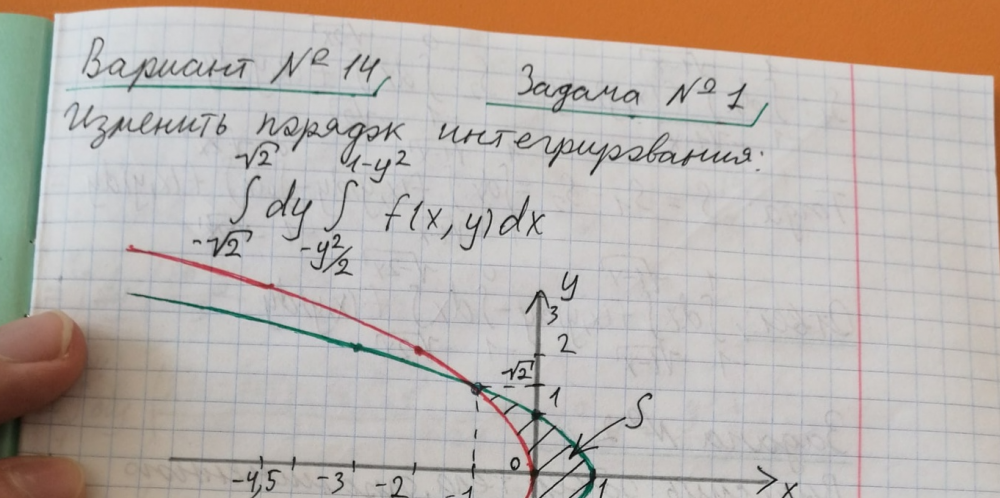 Вариант № 14
Задача № 1
Изменить порядок интегрирования:
√2 1-y²
∫ dy ∫ f(x, y) dx
-√2 -y²/2
y
3
2
√2
1
S
0
-4,5 -3 -2 -1 1 x